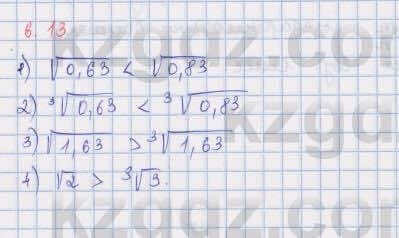 6.13
1) √0,63 < √0,83
2) ³√0,63 < ³√0,83
3) √1,63 > ³√1,63
4) √2 > ³√3.
kzgaz.com
kzgaz
kzgaz.com